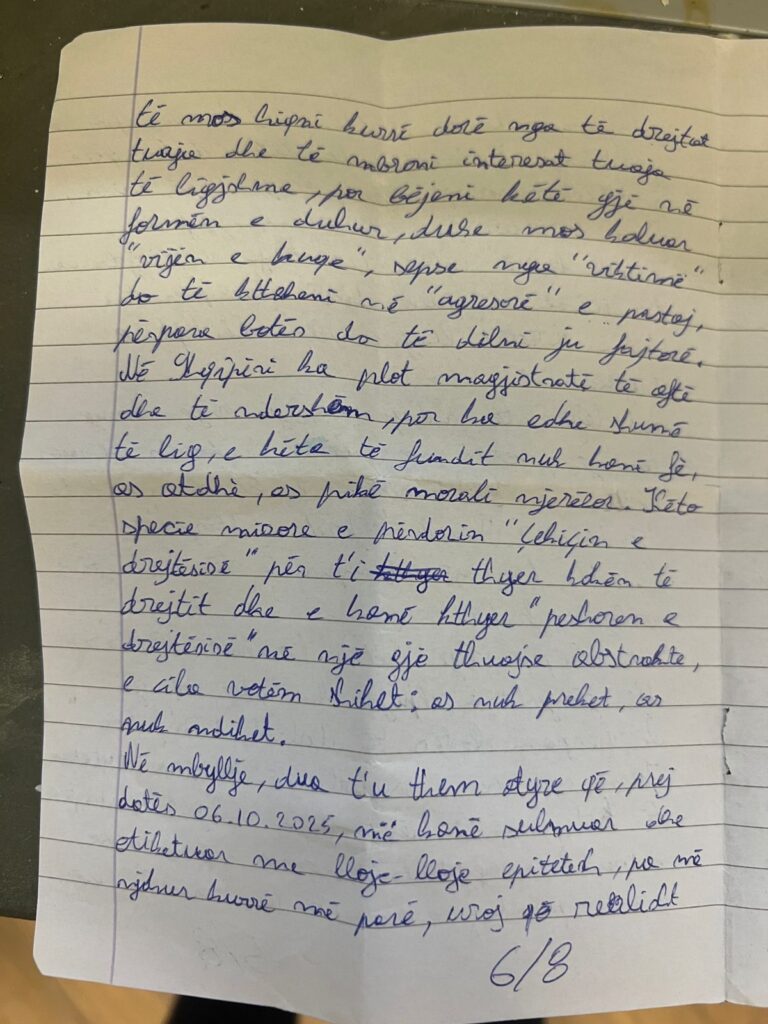 të mos hiqni kurrë dorë nga të drejtat
tuaja dhe të mbroni interesat tuaja
të ligjshme, por bëjeni këtë gjë në
formën e duhur, duke mos kaluar
"vijën e kuqe", sepse nga "viktimë"
do të ktheheni në "agresorë" e pastaj,
përpara botës do të dilni ju fajtorë.
Në Shqipëri ka plot magjistratë të aftë
dhe të ndershëm, por ka edhe shumë
të lig, e këta të fundit nuk kanë fé,
as atdhè, as pikë morali njerëzor. Këto
specie mizore e përdorin "Çekiçin e
drejtësisë" për t'i thyer kokën të
drejtit dhe e kanë kthyer "peshoren e
drejtësisë" në një gjë thuajse abstrakte,
e cila vetëm shihet; as nuk preket, as
nuk ndihet.
Në mbyllje, dua t'u them atyre që, prej
datës 06.10.2025, më kanë sulmuar dhe
etiketuar me lloje-lloje epitetesh, pa më
njohur kurrë më parë, uroj që realidt
6/8